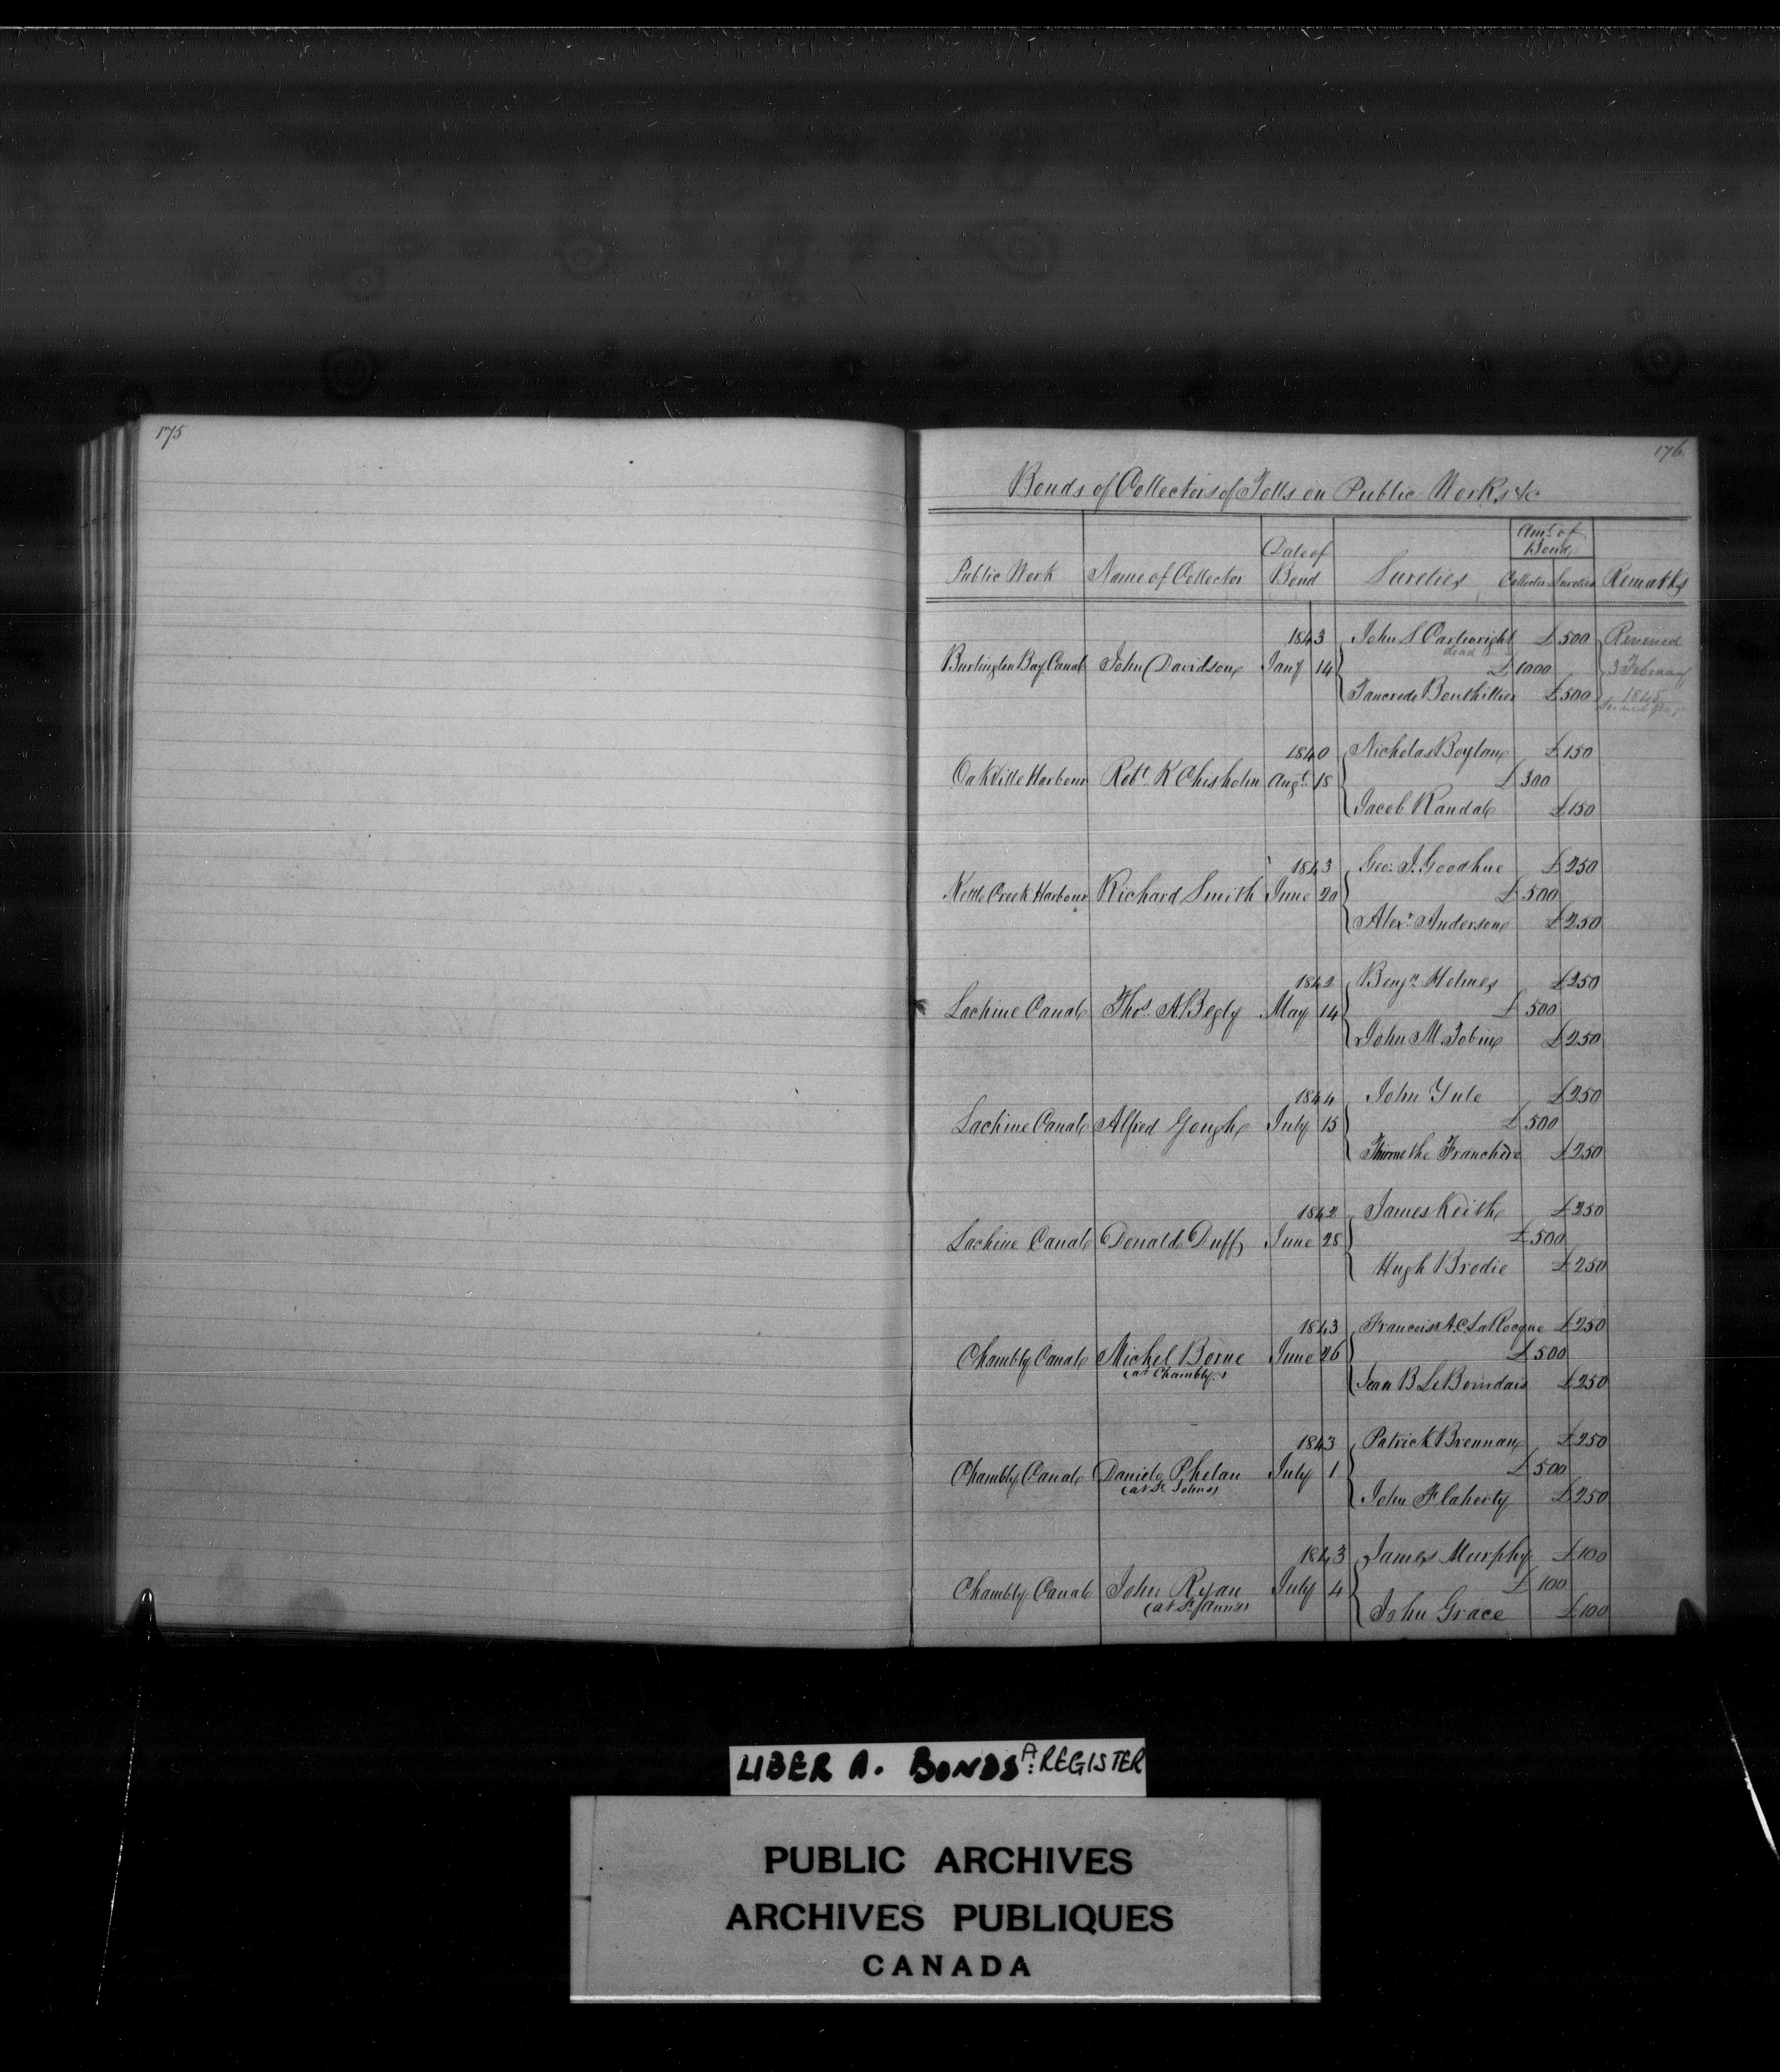 175
176
Bonds of Collectors of Tolls on Public Works &c
Amt. of
Bond
Date of
Public Work Name of Collector Bond Sureties Collector Sureties Remarks
1843 John S Cartwright £500 Renewed
dead
Burlington Bay Canal John Davidson Jany 14 £1000 3 February
Tancrede Bouthillier £500 1845
1840 Nicholas Boylan £150
Oakville Harbour Robt. K Chisholm Augt. 18 £300
Jacob Randal £150
1843 Geo: J. Goodhue £250
Kettle Creek Harbour Richard Smith June 20 £500
Alexr. Anderson £250
1842 Benjn. Holmes £250
Lachine Canal Thos. A Begly May 14 £500
John M. Tobin £250
1844 John Yule £250
Lachine Canal Alfred Gough July 15 £500
Franchere £250
1842 James Keith £250
Lachine Canal Donald Duff June 28 £500
Hugh Brodie £250
1843 Francois A. C. LaRocque £250
Chambly Canal Michel Borne June 26 £500
(at Chambly)
Jean B Le Bourdais £250
1843 Patrick Brennan £250
Chambly Canal Daniel Phelan July 1 £500
(at St. Johns)
John Flaherty £250
1843 James Murphy £100
Chambly Canal John Ryan July 4 £100
(at St.
John Grace £100
LIBER A. BONDS A: REGISTER
PUBLIC ARCHIVES
ARCHIVES PUBLIQUES
CANADA